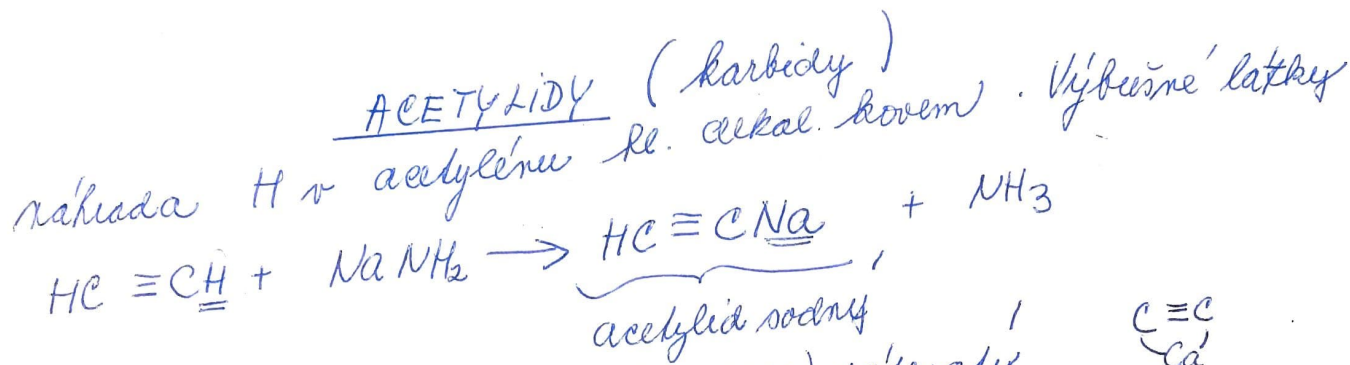 ACETYLIDY (karbidy)
náhrada H v acetylénu alkal. kovem. Výbušné látky
HC ≡ CH + NaNH₂ → HC ≡ CNa + NH3
acetylid sodný
C ≡ C
Ca